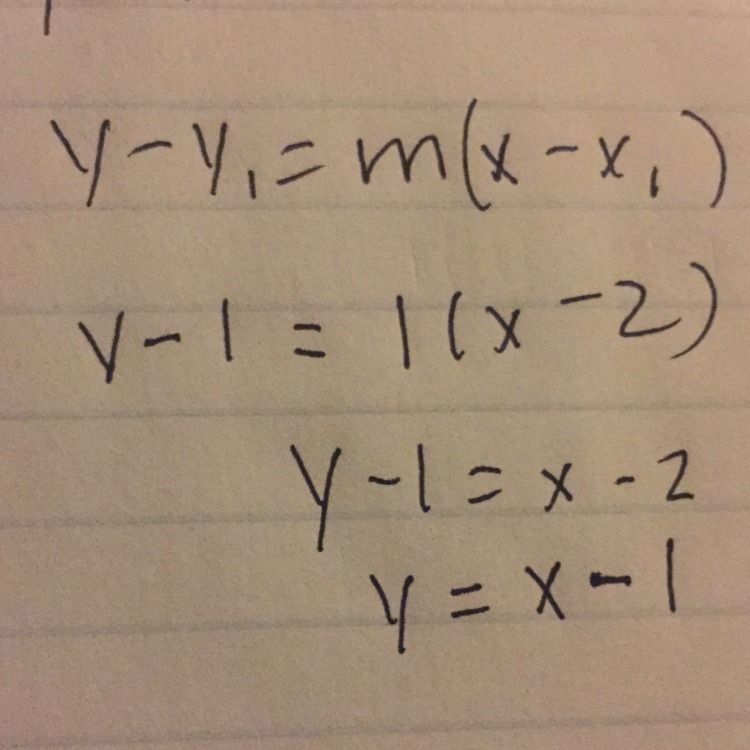 y - y₁ = m(x - x₁)
y - 1 = 1(x - 2)
y - 1 = x - 2
y = x - 1